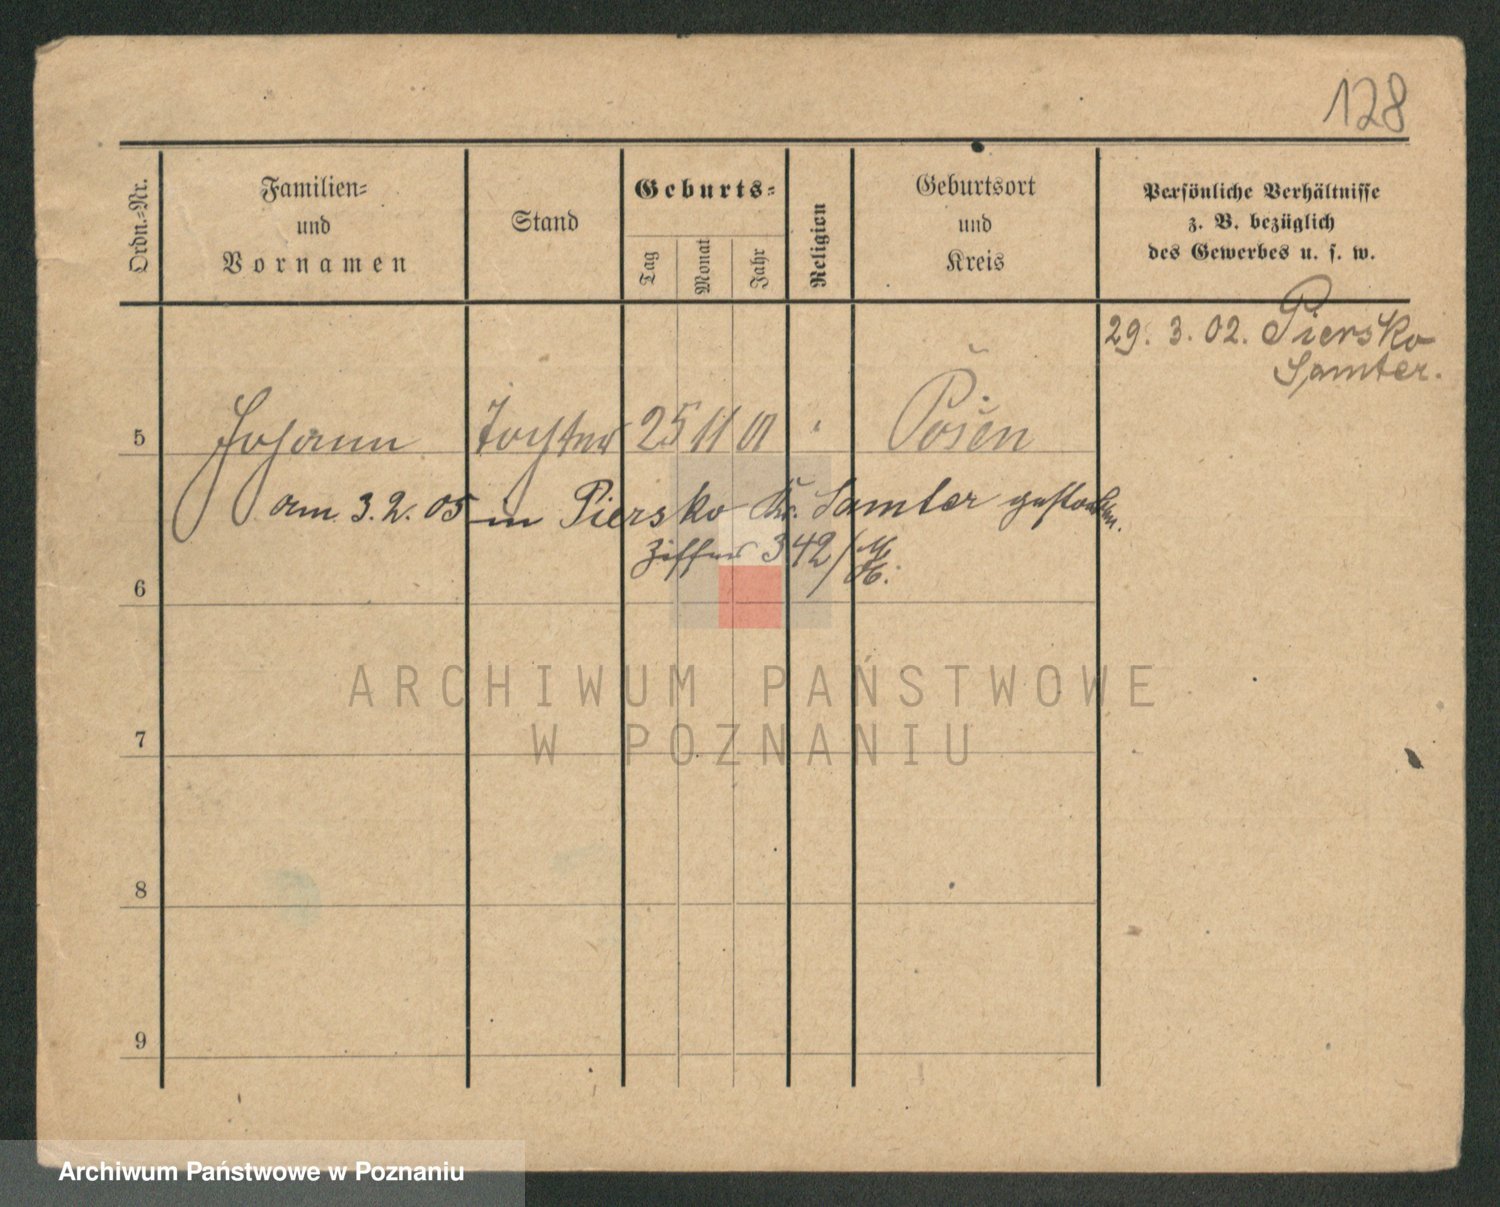 128
Ordn.-Nr.
Familien-
und
Vornamen
Stand
Geburts-
Tag
Monat
Jahr
Religion
Geburtsort
und
Kreis
Persönliche Verhältnisse
z. B. bezüglich
des Gewerbes u. s. w.
29. 3. 02. Piersko
Samter.
5 Johann Tochter 25 11 01 " Posen
am 3.2.05 in Piersko Kr. Samter gestorben.
Ziffer 342/
6
ARCHIWUM PAŃSTWOWE
W POZNANIU
7
8
9
Archiwum Państwowe w Poznaniu